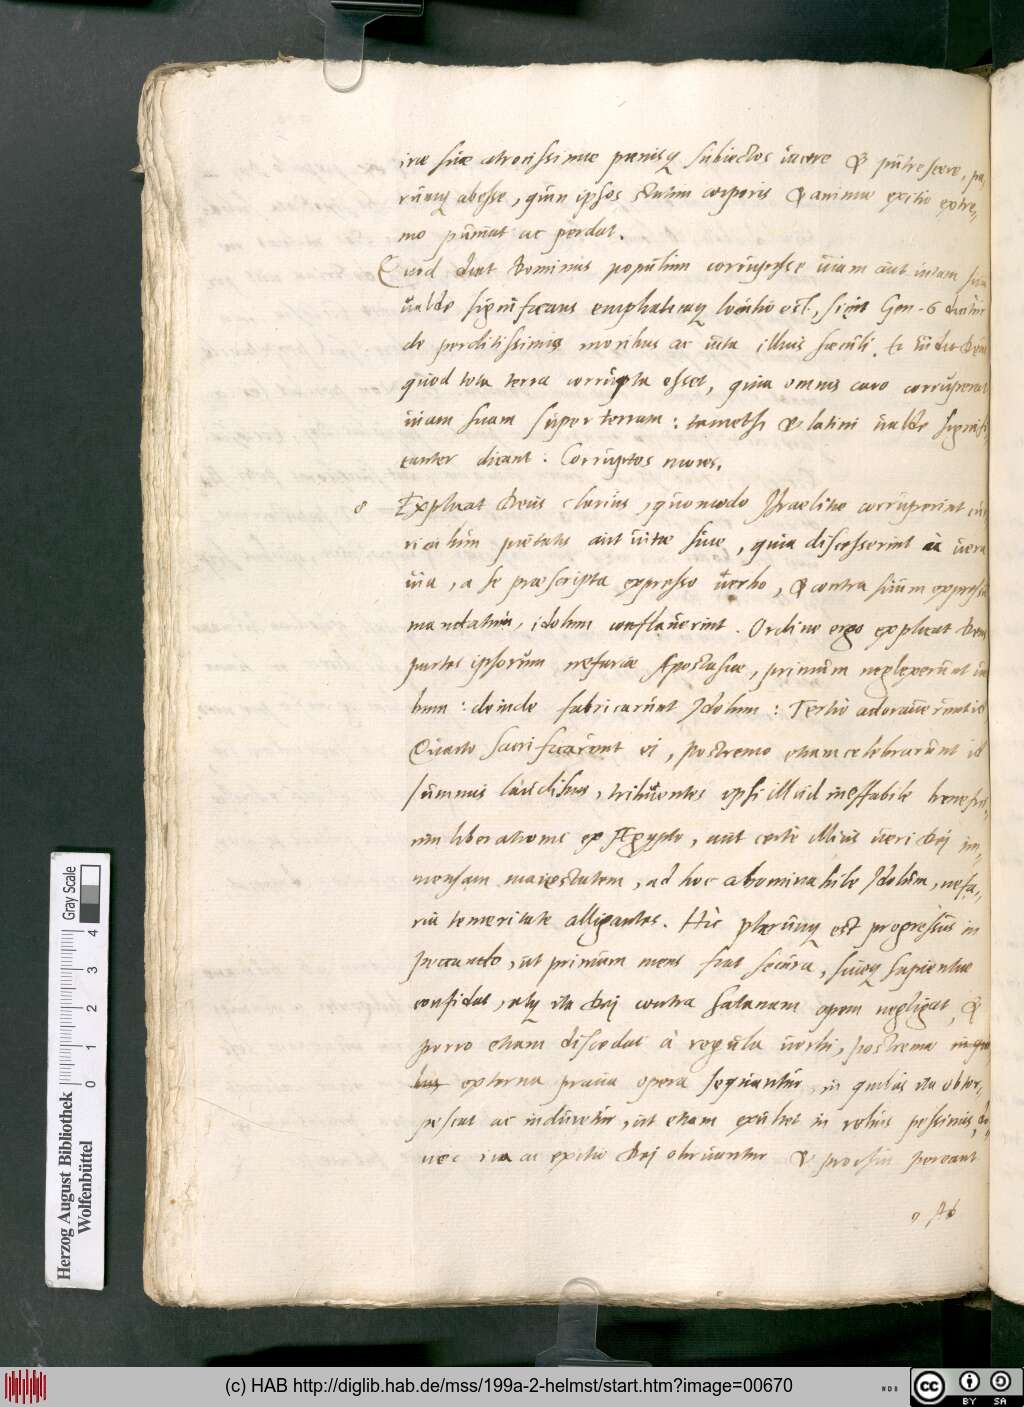 irae suae atrocissimae poenisq subiectos iacere & putrescere, pa,
rumq abesse, quin ipsos statim corporis & animae exitio extre,,
mo puniat ac perdat.
Quod dicit Dominus populum corrupisse uiam aut uitam suam
ualde significans emphaticaq locutio est, sicut Gen. 6 dicitur
de perditissimis moribus ac uita illius saeculi. Et uidit Deus
quod tota terra corrupta esset, quia omnis caro corruperat
uiam suam super terram: tametsi & latini ualde signifi
canter dicant: Corruptos mores.
8 Explicat Deus clarius, quomodo Israelitae corruperint
pietatis aut uitae suae, quia discesserint a uera
uia, a se praescripta expresso uerbo, & contra suum expressum
mandatum, idolum conflauerint. Ordine ergo explicat Deus
partes ipsorum nefariae Apostasiae, primum neglexerunt uer
bum: deinde fabricarunt Idolum: Tertio adorauerunt id
Quarto sacrificarunt ei, postremo etiam celebrarunt id
summis laudibus, tribuentes ipsi illud ineffabile benefici,,
um liberationis ex AEgypto, aut certe illius ueri Dei im,,
mensam maiestatem, ad hoc abominabile Idolum, nefa,,
ria temeritate alligantes. Hic plerunq est progressus in
peccando, ut primum mens fiat secura, suaeq sapientiae
confidat, atq ita Dei contra Satanam opem negligat, &
porro etiam discedat à regula uerbi, postremo in
externa praua opera sequantur, in quibus ita obtor,,
pescat ac induretur, ut etiam exultet in rebus pessimis, do,,
nec ira ac exitio Dei obruantur & prorsus pereant
9 Ab
Herzog August Bibliothek
Wolfenbüttel
Gray Scale
0 1 2 3 4
(c) HAB http://diglib.hab.de/mss/199a-2-helmst/start.htm?image=00670
cc BY SA